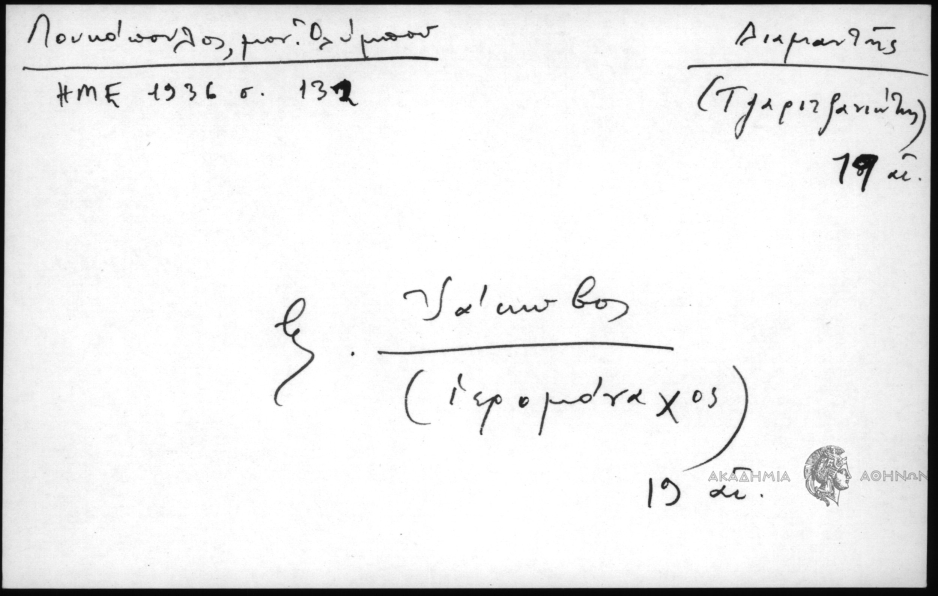 Λουκόπουλος, μον. Ὀλύμπου
ΗΜΕ 1936 σ. 132
Διαμαντῆς
(Τζαριτζανιώτης)
19 αἰ.
βλ. Ἰάκωβος
(ἱερομόναχος)
19 αἰ.
ΑΚΑΔΗΜΙΑ ΑΘΗΝΩΝ